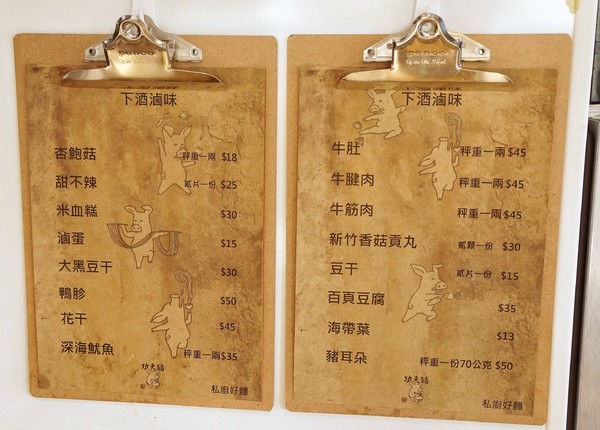 penco
下酒滷味
杏鮑菇 秤重一兩 $18
甜不辣 貳片一份 $25
米血糕 $30
滷蛋 $15
大黑豆干 $30
鴨胗 $50
花干 $45
深海魷魚 秤重一兩$35
私廚好麵
penco
下酒滷味
牛肚 秤重一兩 $45
牛腱肉 秤重一兩 $45
牛筋肉 秤重一兩 $45
新竹香菇貢丸 貳顆一份 $30
豆干 貳片一份 $15
百頁豆腐 $35
海帶葉 $13
豬耳朵 秤重一份70公克 $50
私廚好麵